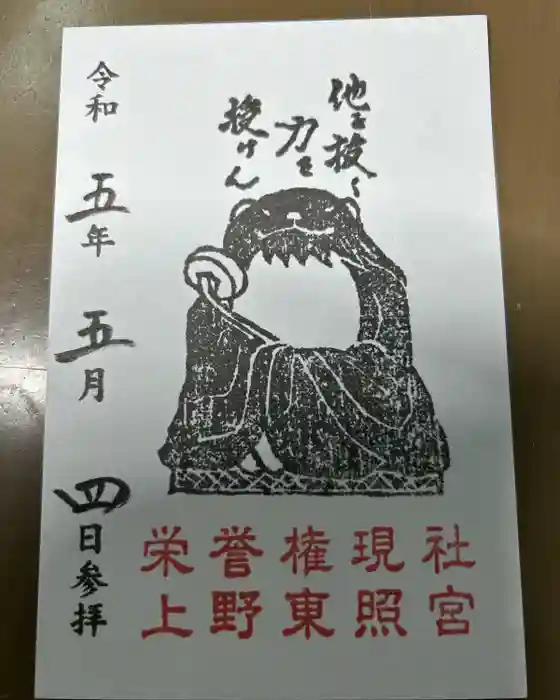 他を抜く
力を
授けん
栄誉権現社
上野東照宮
令和 五年 五月 四日参拝